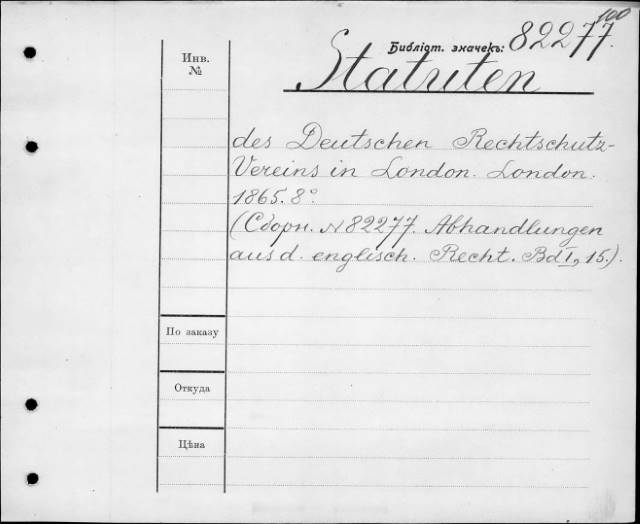 100
Библіот. значекъ: 82277.
Инв.
№
Statuten
des Deutschen Rechtschutz-
Vereins in London. London.
1865. 8°.
(Сборн. №82277. Abhandlungen
aus d. englisch. Recht. Bd I, 15.).
По заказу
Откуда
Цѣна